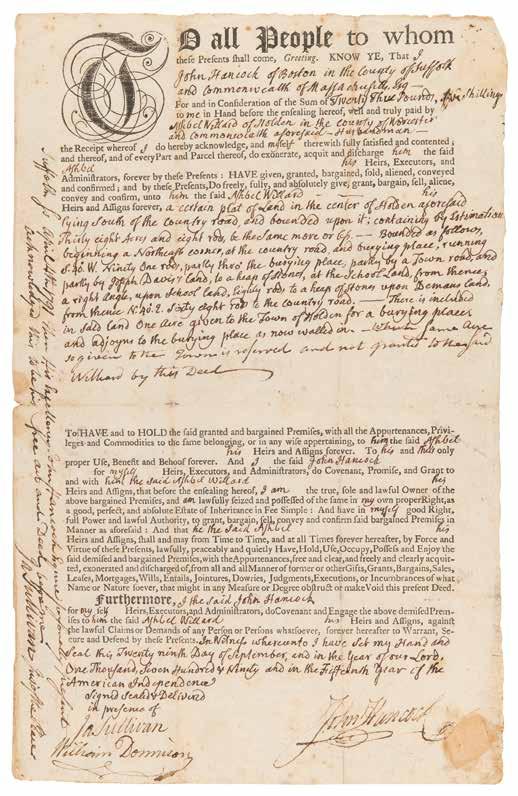 TO all People to whom
these Presents shall come, Greeting. KNOW YE, That I
John Hancock of Boston in the County of Suffolk
and Commonwealth of Massachusetts, Esq —
For and in Consideration of the Sum of Twenty Three Pounds, five Shillings
to me in Hand before the ensealing hereof, well and truly paid by
Ashbel Willard of Holden in the county of Worcester
and Commonwealth aforesaid — Husbandman —
the Receipt whereof I do hereby acknowledge, and myself therewith fully satisfied and contented;
and thereof, and of every Part and Parcel thereof, do exonerate, acquit and discharge him the said
Ashbel his Heirs, Executors, and
Administrators, forever by these Presents: HAVE given, granted, bargained, sold, aliened, conveyed
and confirmed; and by these Presents, Do freely, fully, and absolutely give, grant, bargain, sell, aliene,
convey and confirm, unto him the said Ashbel Willard — his
Heirs and Assigns forever, a certain plot of Land in the center of Holden aforesaid
lying South of the country road and bounded upon it; containing by Estimation
Thirty eight Acres and eight rod, be the same more or less — Bounded as follows,
beginning a Northeast corner, at the country road, and burying place, running
S. 40. W. Ninety One rod, partly thro' the burying place, partly by a Town road, and
partly by Joseph Davis's land, to a heap of Stones, at the School Land, from thence
a right angle, upon School land, Eighty rod to a heap of Stones upon Demans land,
from thence N. 40. E. Sixty eight rod to the country road. — There is included
in said land One Acre given to the Town of Holden for a burying place
and adjoyns to the burying place as now walled in — Which same Acre
so given to the Town is referred and not granted to the said
Willard by this Deed
To HAVE and to HOLD the said granted and bargained Premises, with all the Appurtenances, Privi-
leges and Commodities to the same belonging, or in any wise appertaining, to him the said Ashbel
his Heirs and Assigns forever. To his and their only
proper Use, Benefit and Behoof forever. And I the said John Hancock
for myself Heirs, Executors, and Administrators, do Covenant, Promise, and Grant to
and with him the said Ashbel Willard his
Heirs and Assigns, that before the ensealing hereof, I am the true, sole and lawful Owner of the
above bargained Premises, and am lawfully seized and possessed of the same in my own proper Right, as
a good, perfect, and absolute Estate of Inheritance in Fee Simple: And have in myself good Right,
full Power and lawful Authority, to grant, bargain, sell, convey and confirm said bargained Premises in
Manner as aforesaid: And that he the said Ashbel his
Heirs and Assigns, shall and may from Time to Time, and at all Times forever hereafter, by Force and
Virtue of these Presents, lawfully, peaceably and quietly Have, Hold, Use, Occupy, Possess and Enjoy the
said demised and bargained Premises, with the Appurtenances, free and clear, and freely and clearly acquit-
ted, exonerated and discharged of, from all and all Manner of former or other Gifts, Grants, Bargains, Sales,
Leases, Mortgages, Wills, Entails, Jointures, Dowries, Judgments, Executions, or Incumbrances of what
Name or Nature soever, that might in any Measure or Degree obstruct or make Void this present Deed.
Furthermore, I the Said John Hancock
for my self Heirs, Executors, and Administrators, do Covenant and Engage the above demised Prem-
ises to him the said Ashbel Willard his Heirs and Assigns, against
the lawful Claims or Demands of any Person or Persons whatsoever, forever hereafter to Warrant, Se-
cure and Defend by these Presents. In Witness whereunto I have Set my Hand and
Seal this Twenty ninth Day of September, and in the Year of our Lord
One Thousand, Seven Hundred & Ninety and in the Fifteenth Year of the
American Independence
Signed Sealed & Delivered
in presence of
Ja Sullivan
William Donnison
John Hancock
Suffolk ss April 4th 1791 Then His Excellency
acknowledged this to be his free act and Deed
Ja Sullivan